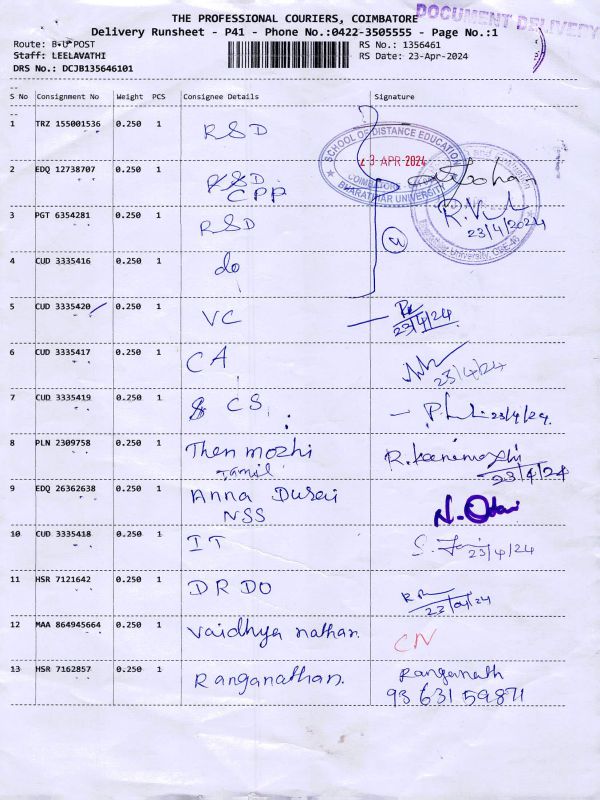 THE PROFESSIONAL COURIERS, COIMBATORE
DOCUMENT DELIVERY
Delivery Runsheet - P41 - Phone No.:0422-3505555 - Page No.:1
Route: B-U POST
Staff: LEELAVATHI
DRS No.: DCJB135646101
RS No.: 1356461
RS Date: 23-Apr-2024
S No Consignment No Weight PCS Consignee Details Signature
1 TRZ 155001536 0.250 1 RSD
SCHOOL OF DISTANCE EDUCATION
23 APR 2024
COIMBATORE
BHARATHIAR UNIVERSITY
2 EDQ 12738707 0.250 1 RSD
CPP
3 PGT 6354281 0.250 1 RSD
23/4/2024
Bharathiar University, CBE-46
4 CUD 3335416 0.250 1 do
5 CUD 3335420 0.250 1 VC
23/4/24
6 CUD 3335417 0.250 1 CA
23/4/24
7 CUD 3335419 0.250 1 CS
23/4/24
8 PLN 2309758 0.250 1 Then mozhi R. Kanimozhi
Tamil 23/4/24
9 EDQ 26362638 0.250 1 Anna Durai
NSS
10 CUD 3335418 0.250 1 IT
23/4/24
11 HSR 7121642 0.250 1 DRDO
23/04/24
12 MAA 864945664 0.250 1 Vaidhya nathan. CN
13 HSR 7162857 0.250 1 Ranganathan. Ranganath
93631 59871